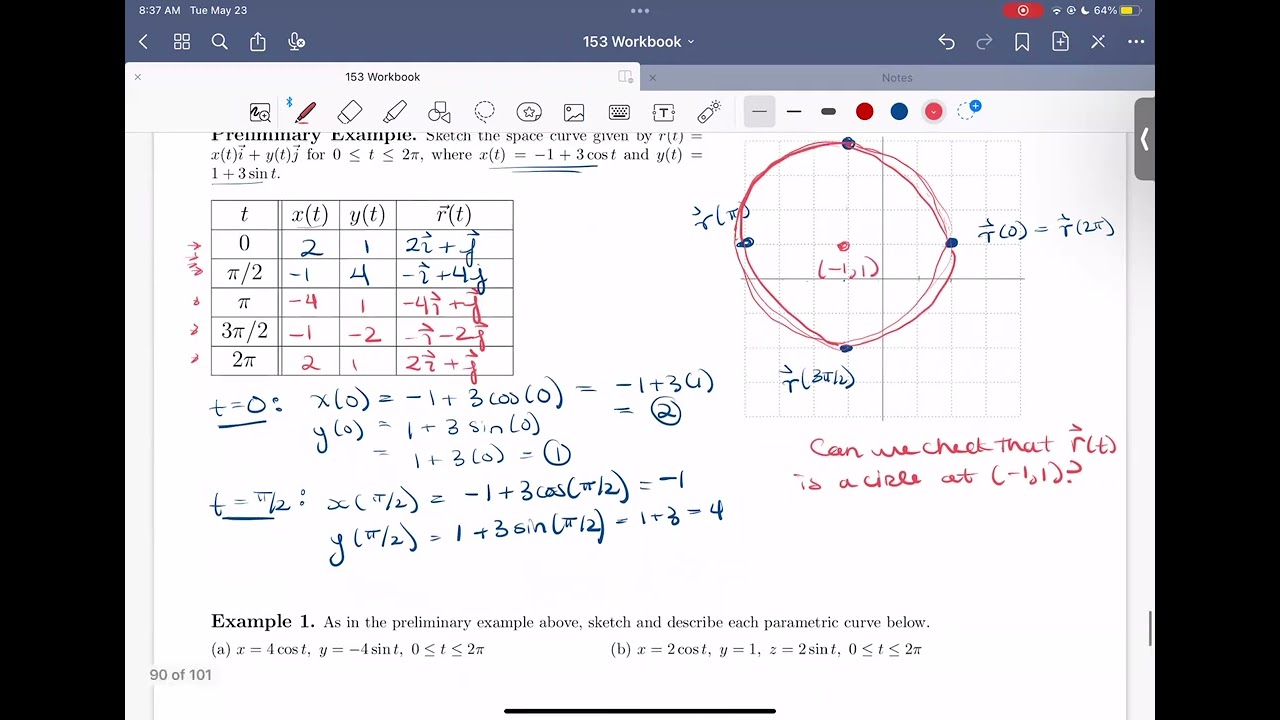 8:37 AM Tue May 23
64%
153 Workbook
153 Workbook
Notes
Preliminary Example. Sketch the space curve given by r⃗(t) =
x(t)i⃗ + y(t)j⃗ for 0 ≤ t ≤ 2π, where x(t) = −1 + 3 cos t and y(t) =
1 + 3 sin t.
t x(t) y(t) r⃗(t)
0 2 1 2i⃗ + j⃗
π/2 -1 4 -i⃗ + 4j⃗
π -4 1 -4i⃗ + j⃗
3π/2 -1 -2 -i⃗ - 2j⃗
2π 2 1 2i⃗ + j⃗
r⃗(π)
r⃗(0) = r⃗(2π)
(-1,1)
r⃗(3π/2)
t=0: x(0) = -1 + 3 cos(0) = -1+3(1)
= 2
y(0) = 1 + 3 sin(0)
= 1 + 3(0) = 1
t = π/2: x(π/2) = -1 + 3cos(π/2) = -1
y(π/2) = 1 + 3 sin(π/2) = 1+3 = 4
Can we check that r⃗(t)
is a circle at (-1,1)?
Example 1. As in the preliminary example above, sketch and describe each parametric curve below.
(a) x = 4 cos t, y = −4 sin t, 0 ≤ t ≤ 2π
(b) x = 2 cos t, y = 1, z = 2 sin t, 0 ≤ t ≤ 2π
90 of 101